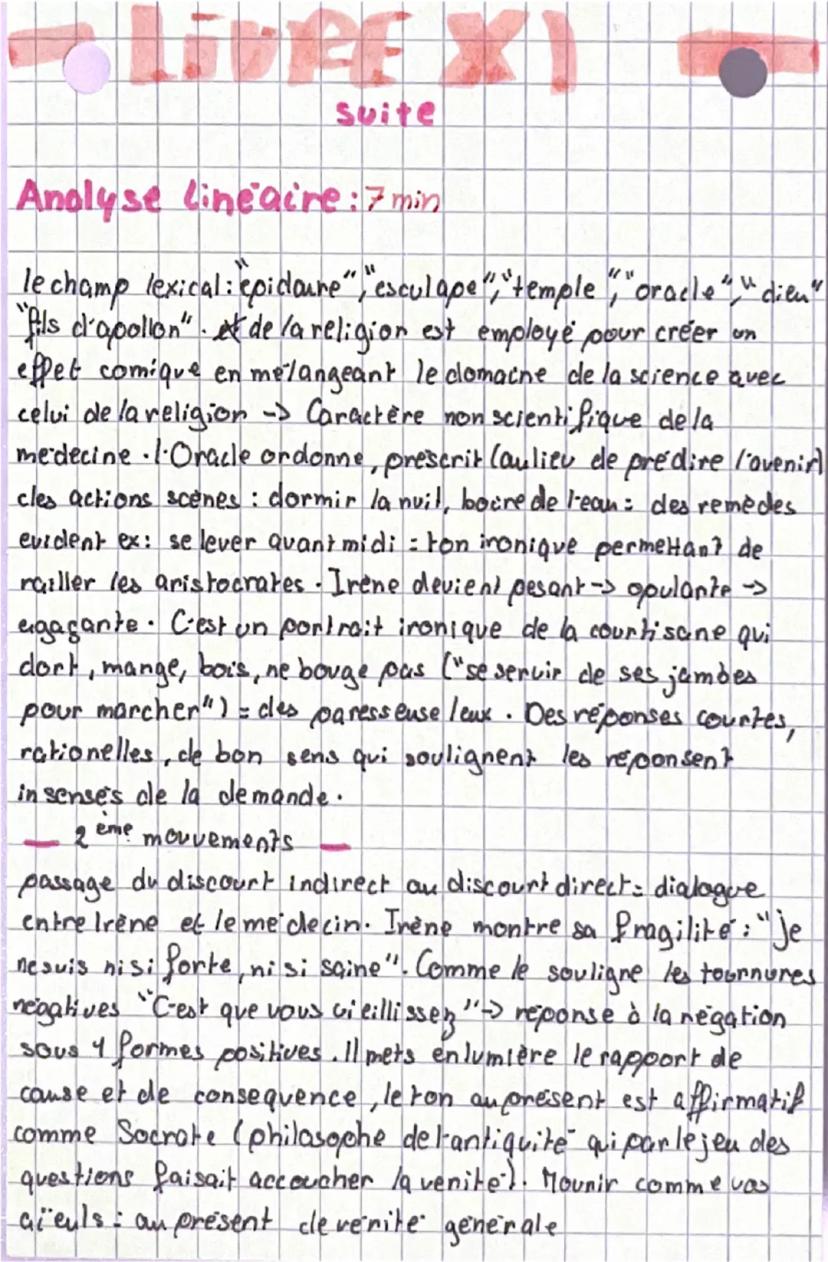 LiVRE XI
suite
Analyse linéaire : 7 min
le champ lexical : "épidaure", "esculape", "temple", "oracle", "dieu"
"fils d'apollon". de la religion est employé pour créer un
effet comique en mélangeant le domaine de la science avec
celui de la religion -> Caractère non scientifique de la
médecine. l'Oracle ordonne, prescrit (au lieu de prédire l'avenir)
des actions scènes : dormir la nuit, boire de l'eau = des remèdes
évident ex : se lever avant midi = ton ironique permettant de
railler les aristocrates. Irène devient pesant -> opulante ->
agaçante. C'est un portrait ironique de la courtisane qui
dort, mange, bois, ne bouge pas ("se servir de ses jambes
pour marcher") = des paresseuse/eux. Des réponses courtes,
rationelles, de bon sens qui soulignent les réponsent
insensés de la demande.
— 2ème mouvements —
passage du discourt indirect au discourt direct = dialogue
entre Irène et le médecin. Irène montre sa fragilité : "je
ne suis ni si forte, ni si saine". Comme le souligne les tournures
négatives "C'est que vous vieillissez" -> réponse à la négation
sous 4 formes positives. Il mets en lumière le rapport de
cause et de conséquence, le ton au présent est affirmatif
comme Socrate (philosophe de l'antiquité qui par le jeu des
questions faisait accoucher la vérité). Mourir comme vos
aïeuls : au présent de vérité générale